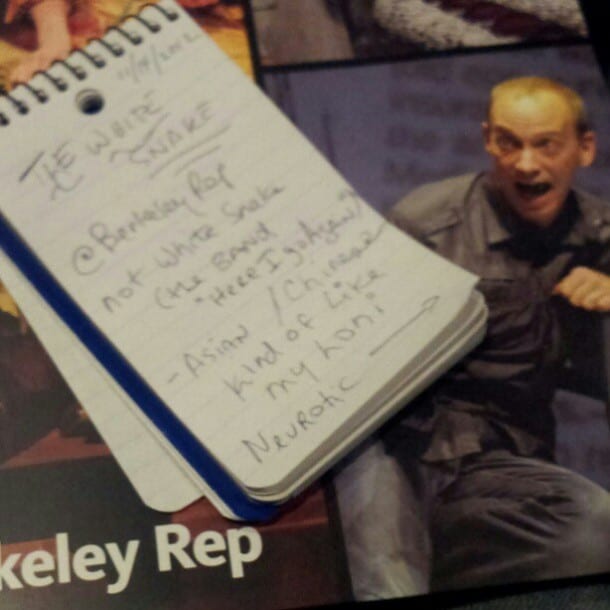 11/14/2012
THE WHITE
SNAKE
@ Berkeley Rep
not White Snake
(the BAND
"Here I go Again")
- ASIAN / Chinese
Kind of Like
my honi
Neurotic →
keley Rep